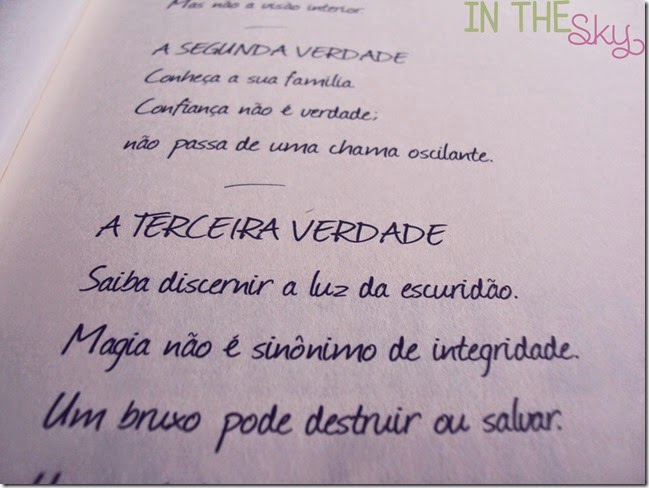 IN THE
Sky
Mas não a visão interior.
A SEGUNDA VERDADE
Conheça a sua família.
Confiança não é verdade;
não passa de uma chama oscilante.
A TERCEIRA VERDADE
Saiba discernir a luz da escuridão.
Magia não é sinônimo de integridade.
Um bruxo pode destruir ou salvar.